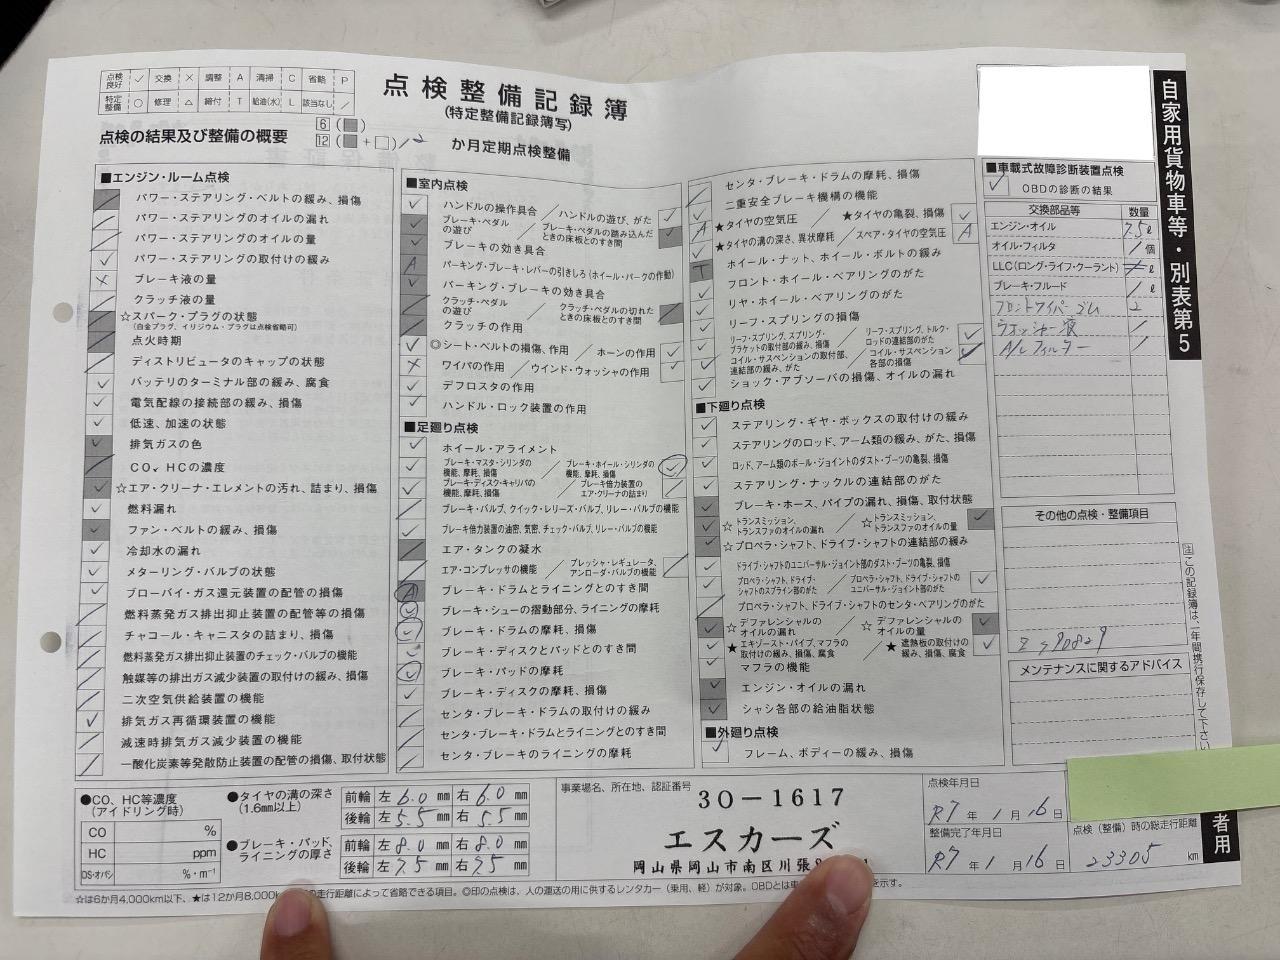 点検良好 ✓ 交換 × 調整 A 清掃 C 省略 P
特定整備 ○ 修理 △ 締付 T 給油(水) L 該当なし ／
点検整備記録簿
(特定整備記録簿写)
点検の結果及び整備の概要
6
12 ( + ) / 2 か月定期点検整備
自家用貨物車等・別表第5
■エンジン・ルーム点検
パワー・ステアリング・ベルトの緩み、損傷
パワー・ステアリングのオイルの漏れ
パワー・ステアリングのオイルの量
パワー・ステアリングの取付けの緩み
ブレーキ液の量
クラッチ液の量
☆スパーク・プラグの状態
(白金プラグ、イリジウム・プラグは点検省略可)
点火時期
ディストリビュータのキャップの状態
バッテリのターミナル部の緩み、腐食
電気配線の接続部の緩み、損傷
低速、加速の状態
排気ガスの色
CO、HCの濃度
☆エア・クリーナ・エレメントの汚れ、詰まり、損傷
燃料漏れ
ファン・ベルトの緩み、損傷
冷却水の漏れ
メターリング・バルブの状態
ブローバイ・ガス還元装置の配管の損傷
燃料蒸発ガス排出抑止装置の配管等の損傷
チャコール・キャニスタの詰まり、損傷
燃料蒸発ガス排出抑止装置のチェック・バルブの機能
触媒等の排出ガス減少装置の取付けの緩み、損傷
二次空気供給装置の機能
排気ガス再循環装置の機能
減速時排気ガス減少装置の機能
一酸化炭素等発散防止装置の配管の損傷、取付状態
■室内点検
ハンドルの操作具合 ／ ハンドルの遊び、がた
ブレーキ・ペダルの遊び ／ ブレーキ・ペダルの踏み込んだときの床板とのすき間
ブレーキの効き具合
パーキング・ブレーキ・レバーの引きしろ (ホイール・パークの作動)
パーキング・ブレーキの効き具合
クラッチ・ペダルの遊び ／ クラッチ・ペダルの切れたときの床板とのすき間
クラッチの作用
◎シート・ベルトの損傷、作用 ／ ホーンの作用
ワイパの作用 ／ ウインド・ウォッシャの作用
デフロスタの作用
ハンドル・ロック装置の作用
■足廻り点検
ホイール・アライメント
ブレーキ・マスタ・シリンダの機能、摩耗、損傷 ／ ブレーキ・ホイール・シリンダの機能、摩耗、損傷
ブレーキ・ディスク・キャリパの機能、摩耗、損傷 ／ ブレーキ倍力装置のエア・クリーナの詰まり
ブレーキ・バルブ、クイック・レリーズ・バルブ、リレー・バルブの機能
ブレーキ倍力装置の油密、気密、チェック・バルブ、リレー・バルブの機能
エア・タンクの凝水
エア・コンプレッサの機能 ／ プレッシャ・レギュレータ、アンローダ・バルブの機能
ブレーキ・ドラムとライニングとのすき間
ブレーキ・シューの摺動部分、ライニングの摩耗
ブレーキ・ドラムの摩耗、損傷
ブレーキ・ディスクとパッドとのすき間
ブレーキ・パッドの摩耗
ブレーキ・ディスクの摩耗、損傷
センタ・ブレーキ・ドラムの取付けの緩み
センタ・ブレーキ・ドラムとライニングとのすき間
センタ・ブレーキのライニングの摩耗
センタ・ブレーキ・ドラムの摩耗、損傷
二重安全ブレーキ機構の機能
★タイヤの空気圧 ／ ★タイヤの亀裂、損傷
★タイヤの溝の深さ、異状摩耗 ／ スペア・タイヤの空気圧
ホイール・ナット、ホイール・ボルトの緩み
フロント・ホイール・ベアリングのがた
リヤ・ホイール・ベアリングのがた
リーフ・スプリングの損傷
リーフ・スプリング、スプリング・ブラケットの取付部の緩み、損傷 ／ リーフ・スプリング、トルク・ロッドの連結部の緩み
コイル・サスペンションの取付部、連結部の緩み、がた ／ コイル・サスペンション各部の損傷
ショック・アブソーバの損傷、オイルの漏れ
■下廻り点検
ステアリング・ギヤ・ボックスの取付けの緩み
ステアリングのロッド、アーム類の緩み、がた、損傷
ロッド、アーム類のボール・ジョイントのダスト・ブーツの亀裂、損傷
ステアリング・ナックルの連結部のがた
ブレーキ・ホース、パイプの漏れ、損傷、取付状態
☆トランスミッション、トランスファのオイルの漏れ ／ ☆トランスミッション、トランスファのオイルの量
☆プロペラ・シャフト、ドライブ・シャフトの連結部の緩み
ドライブ・シャフトのユニバーサル・ジョイント部のダスト・ブーツの亀裂、損傷
プロペラ・シャフト、ドライブ・シャフトのスプライン部のがた ／ プロペラ・シャフト、ドライブ・シャフトのユニバーサル・ジョイント部のがた
プロペラ・シャフト、ドライブ・シャフトのセンタ・ベアリングのがた
☆デファレンシャルのオイルの漏れ ／ ☆デファレンシャルのオイルの量
★エキゾースト・パイプ、マフラの取付けの緩み、損傷、腐食 ／ ★遮熱板の取付けの緩み、損傷、腐食
マフラの機能
エンジン・オイルの漏れ
シャシ各部の給油脂状態
■外廻り点検
フレーム、ボディーの緩み、損傷
■車載式故障診断装置点検
OBDの診断の結果
交換部品等 数量
エンジン・オイル 7.5 ℓ
オイル・フィルタ 1 個
LLC(ロング・ライフ・クーラント) ℓ
ブレーキ・フルード 1 ℓ
フロントワイパーゴム 2
ウオッシャー液 1
A/Cフィルター 1
その他の点検・整備項目
メンテナンスに関するアドバイス
注 この記録簿は、一年間携行保存して下さい
●CO、HC等濃度
(アイドリング時)
CO %
HC ppm
DS・オパシ %・m⁻¹
●タイヤの溝の深さ
(1.6mm以上)
前輪 左 6.0 mm 右 6.0 mm
後輪 左 5.5 mm 右 5.5 mm
●ブレーキ・パッド、ライニングの厚さ
前輪 左 8.0 mm 右 8.0 mm
後輪 左 7.5 mm 右 7.5 mm
事業場名、所在地、認証番号
30-1617
エスカーズ
岡山県岡山市南区川張
点検年月日
R7 年 1 月 16 日
整備完了年月日
R7 年 1 月 16 日
点検(整備)時の総走行距離
23305 km
者用
☆は6か月4,000km以下、★は12か月8,000km の走行距離によって省略できる項目。◎印の点検は、人の運送の用に供するレンタカー(乗用、軽)が対象。OBDとは車 を示す。